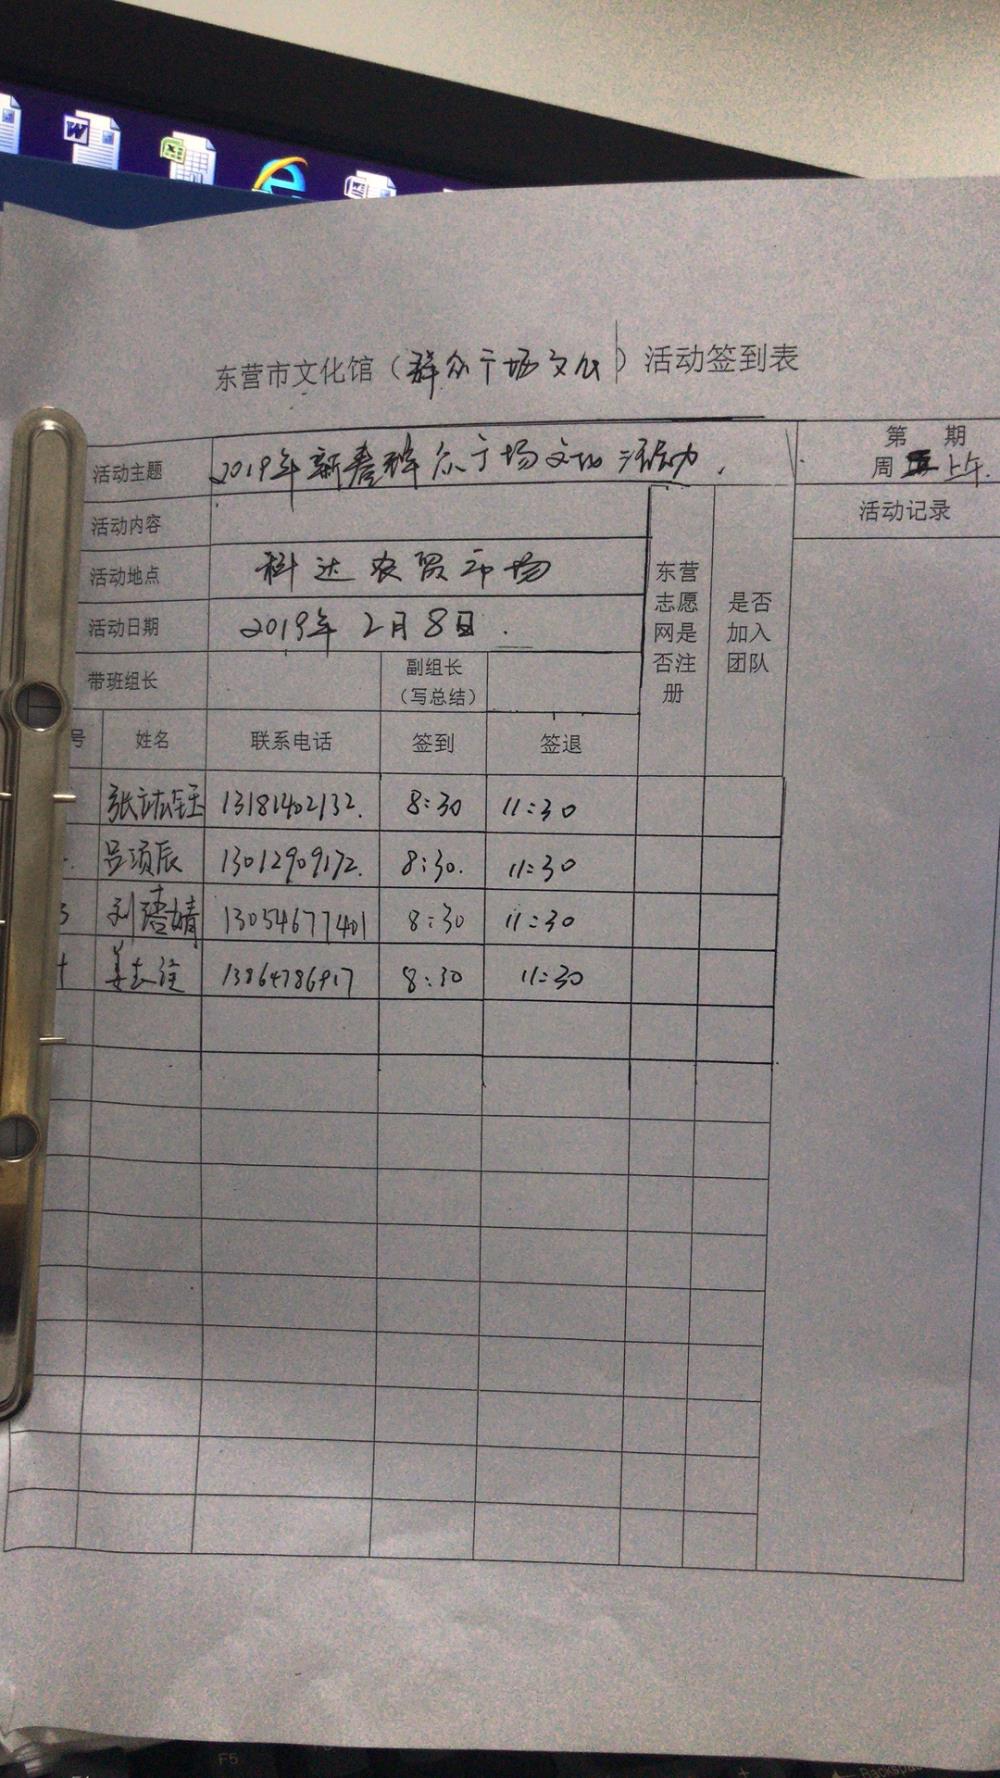 东营市文化馆（群众广场文化）活动签到表
活动主题 2019年新春群众广场文化活动. 第 期
周五上午.
活动内容 活动记录
活动地点 科达农贸市场
活动日期 2019年2月8日.
东营志愿网是否注册 是否加入团队
带班组长 副组长（写总结）
号 姓名 联系电话 签到 签退
13181402132. 8:30 11:30
吕须辰 13012909172. 8:30. 11:30
3 13054677401 8:30 11:30
8:30 11:30
F5
Backspace